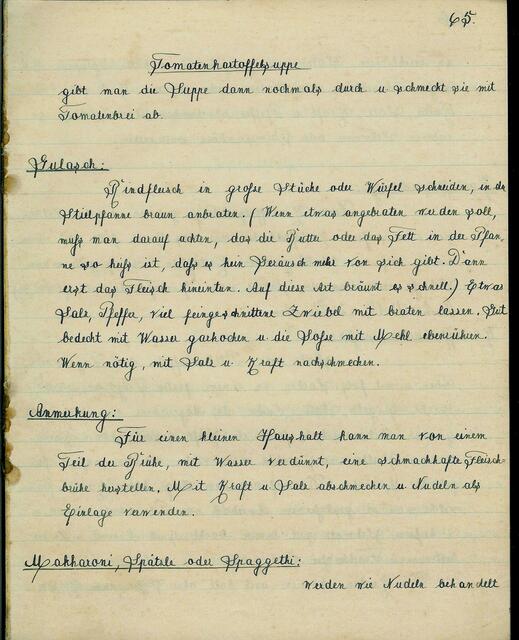 65.
Tomatenkartoffelsuppe
gibt man die Suppe dann nochmals durch u. schmeckt sie mit
Tomatenbrei ab.
Gulasch:
Rindfleisch in große Stücke oder Würfel schneiden, in der
Stielpfanne braun anbraten. (Wenn etwas angebraten werden soll,
muß man darauf achten, das die Butter oder das Fett in der Pfan-
ne so heiß ist, daß es kein Geräusch mehr von sich gibt. Dann
erst das Fleisch hineintun. Auf diese Art bräunt es schnell.) Etwas
Salz, Pfeffer, viel feingeschnittene Zwiebel mit braten lassen. Gut
bedeckt mit Wasser garkochen u. die Soße mit Mehl
Wenn nötig, mit Salz u. Kraft nachschmecken.
Anmerkung:
Für einen kleinen Haushalt kann man von einem
Teil der Brühe, mit Wasser verdünnt, eine schmackhafte Fleisch-
brühe herstellen. Mit Kraft u. Salz abschmecken u. Nudeln als
Einlage verwenden.
Makkaroni, Spätzle oder Spaggethi:
werden wie Nudeln behandelt